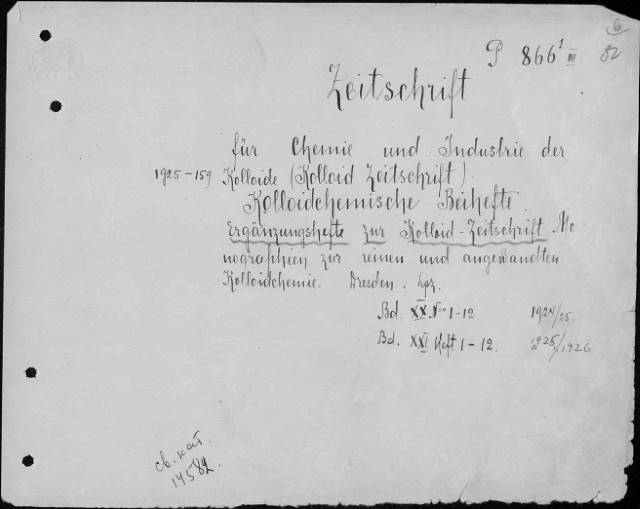 6
82
P 866¹ III
Zeitschrift
für Chemie und Industrie der
1925-159 Kolloide (Kolloid Zeitschrift).
Kolloidchemische Beihefte.
Ergänzungshefte zur Kolloid-Zeitschrift Mo-
nographien zur reinen und angewandten
Kolloidchemie. Dresden. Lpz.
Bd. XX No 1-12 1924/25.
Bd. XXI Heft 1-12. 1925/1926
св. кат.
14582.